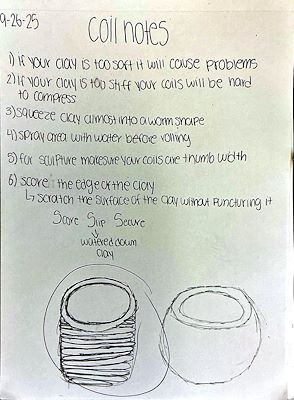 9-26-25
Coil notes
1) if your clay is too soft it will cause problems
2) if your clay is too stiff your coils will be hard
to compress
3) squeeze clay almost into a worm shape
4) spray area with water before rolling
5) for sculpture make sure your coils are thumb width
6) score the edge of the clay
↳ scratch the surface of the clay without puncturing it
Score Slip Secure
↓
watered down
clay